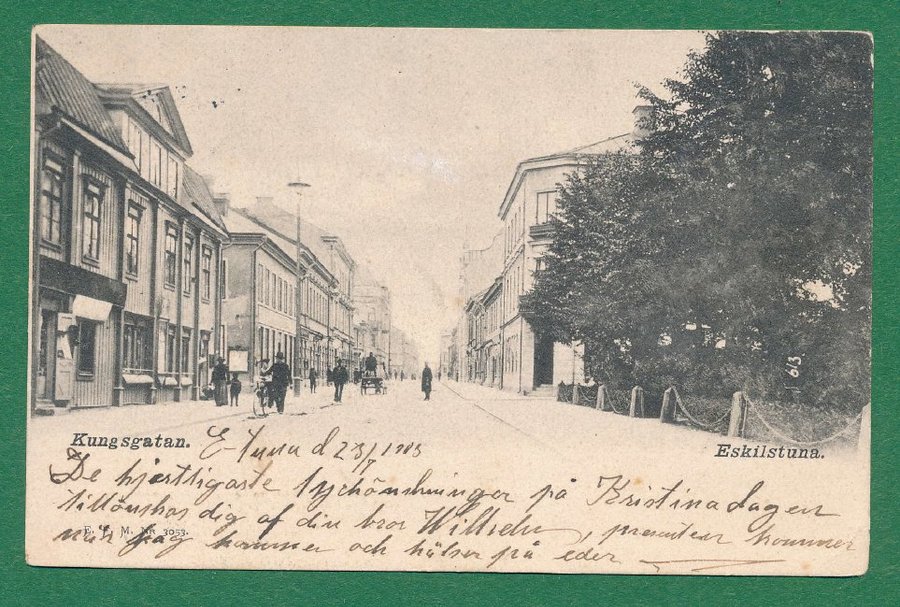 Kungsgatan.
Eskilstuna.
E-tuna d 23/7 1903
De hjertligaste lyckönskningar på Kristinadagen
tillönskas dig af din bror Wilhelm, presenten kommer
när jag kommer och hälser på eder
E. L. M. Nr. 3053.
63